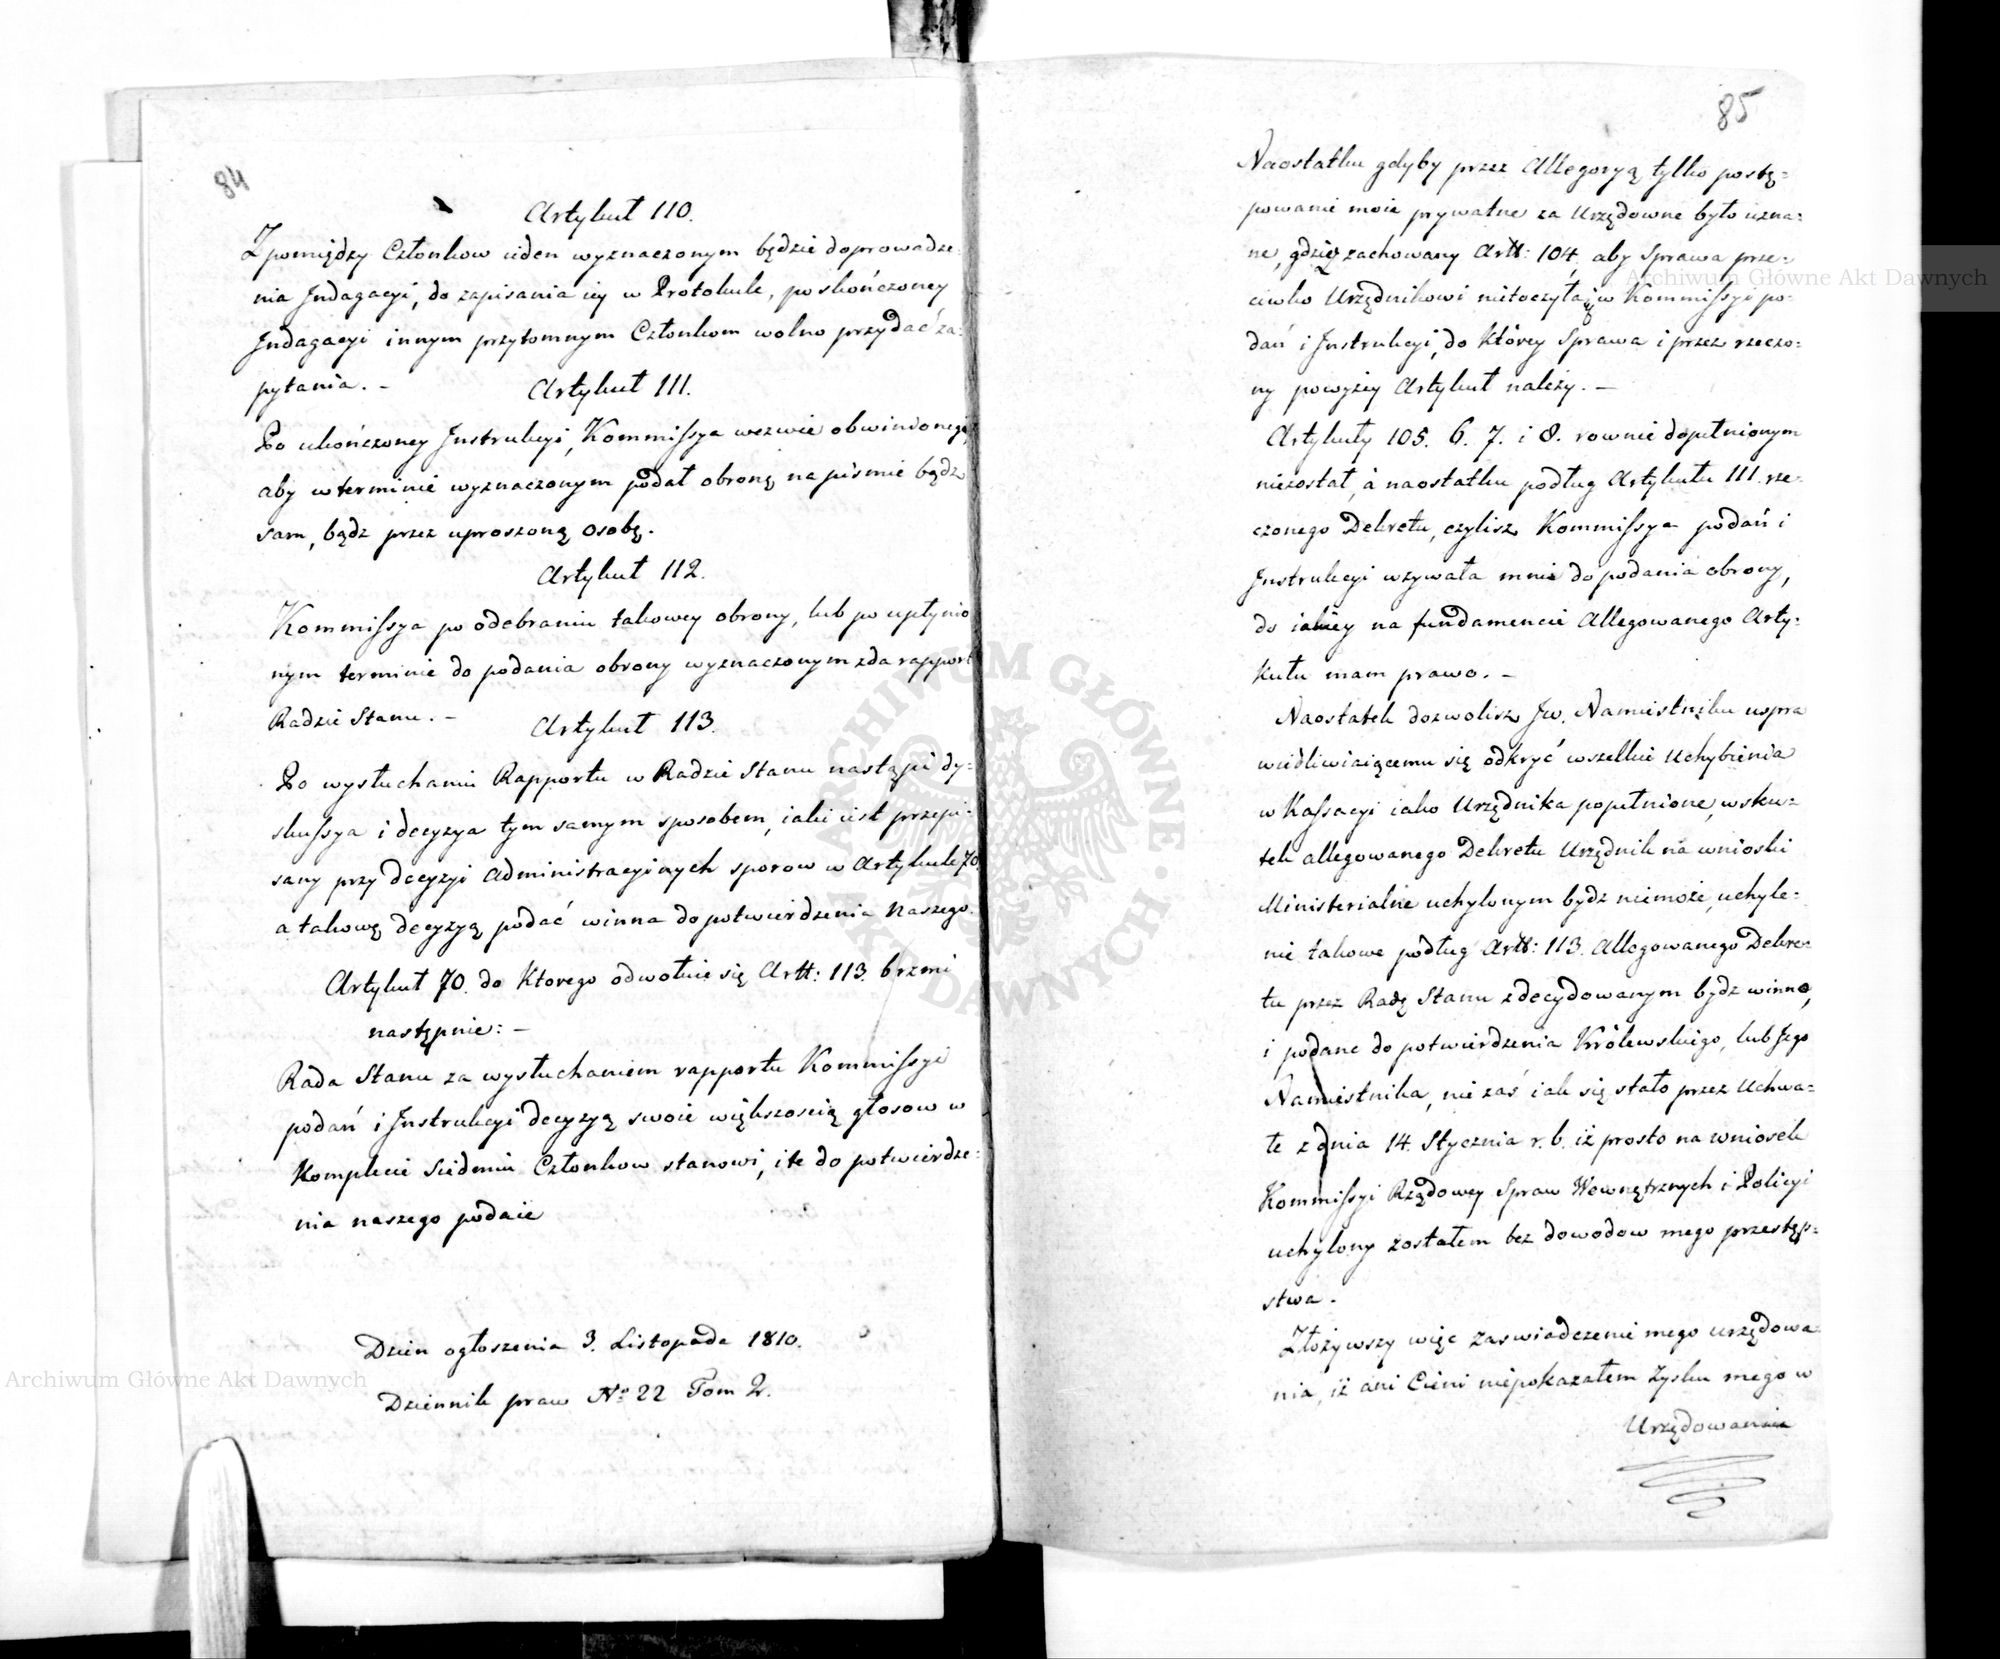 84
Artykuł 110.
Z pomiędzy Członkow ieden wyznaczonym będzie do prowadze:
nia Jndagacyi, do zapisania iey w Protokule, po skończoney
Jndagacyi innym przytomnym Członkom wolno przydać za:
pytania. –
Artykuł 111.
Po ukończoney Jnstrukcyi, Kommissya wezwie obwinionego,
aby w terminie wyznaczonym podał obronę na pismie bądz
sam, bądz przez uproszoną osobę.
Artykuł 112.
Kommissya po odebraniu takowey obrony, lub po upłynio
nym terminie do podania obrony wyznaczonym zda rapport
Radzie Stanu. –
Artykuł 113.
Po wysłuchaniu Rapportu w Radzie Stanu nastąpi dy:
skussya i decyzya tym samym sposobem, iaki iest przepi:
sany przy decyzyi administracyinych sporow w Artykule 70.
a takowę decyzyą podać winna do potwierdzenia Naszego.
Artykuł 70. do Ktorego odwołuie się Artt: 113. brzmi
następnie: –
Rada Stanu za wysłuchaniem rapportu Kommissyi
podań i Jnstrukcyi decyzyą swoie większoscią głosow w
Komplecie siedmiu Członkow stanowi, i te do potwierdze:
nia naszego podaie
Dzien ogłoszenia 3. Listopada 1810.
Dziennik praw No 22 Tom 2.
85
Naostatku gdyby przez Allegoryą tylko postę:
powanie moie prywatne za Urzędowne było uzna:
ne, gdzież zachowany Artt: 104, aby Sprawa prze:
ciwko Urzędnikowi nietoczyła się w Kommissyi po:
dań i Jnstrukcyi, do Którey Sprawa i przez rzeczo:
ny powyżey Artykuł należy. –
Artykuły 105. 6. 7. i 8. rownie dopełnionym
niezostał, à naostatku podług Artykułu 111. rze:
czonego Dekretu, czylisz Kommissya podań i
Jnstrukcyi wzywała mnie do podania obrony,
do iakiey na fundamencie Allegowanego Arty:
kułu mam prawo. –
Naostatek dozwolisz Jw. Namiestniku uspra
wiedliwiaiącemu się odkryć wszelkie Uchybienia
w Kassacyi iako Urzędnika popełnione, w sku:
tek allegowanego Dekretu Urzędnik na wnioski
Ministerialne uchylonym bydz niemoże, uchyle:
nie takowe podług Artt: 113. Allegowanego Dekre:
tu przez Radę Stanu zdecydowanym bydz winno,
i podane do potwierdzenia Królewskiego, lub Jego
Namiestnika, nie zaś iak się stało przez Uchwa:
łę z dnia 14. Stycznia r. b. iż prosto na wniosek
Kommissyi Rządowey Spraw Wewnętrznych i Policyi
uchylony zostałem bez dowodow mego przestęp:
stwa.
Złożywszy więc Zaswiadczenie mego urzędowa:
nia, iż ani Cieni niepokazałem Zysku mego w
Urzędowaniu
ARCHIWUM GŁÓWNE AKT DAWNYCH
Archiwum Główne Akt Dawnych
Archiwum Główne Akt Dawnych